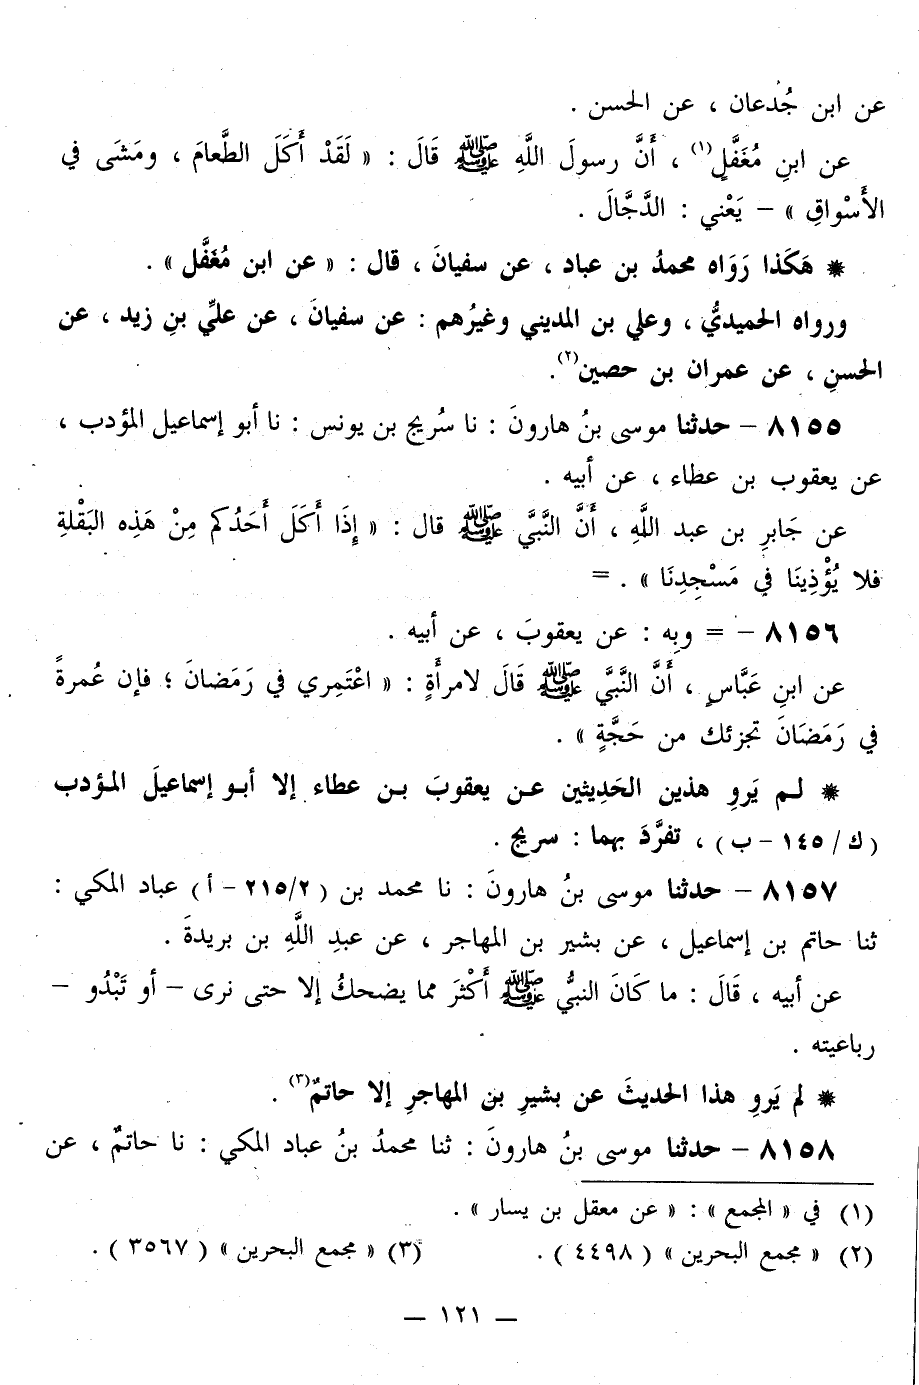 عن ابن جُدعان ، عن الحسن .
عن ابنِ مُغَفَّلٍ(١) ، أَنَّ رسولَ اللَّهِ ﷺ قَالَ : « لَقَدْ أَكَلَ الطَّعامَ ، ومَشَى في
الأَسْواقِ » – يَعْني : الدَّجَّالَ .
* هَكَذا رَوَاه محمدُ بن عباد ، عن سفيانَ ، قال : « عن ابن مُغَفَّل » .
ورواه الحميديُّ ، وعلي بن المديني وغيرُهم : عن سفيانَ ، عن عليِّ بنِ زيد ، عن
الحسنِ ، عن عمران بن حصين(٢).
٨١٥٥ – حدثنا موسى بنُ هارونَ : نا سُريج بن يونس : نا أبو إسماعيل المؤدب ،
عن يعقوب بن عطاء ، عن أبيه .
عن جَابرِ بن عبد اللَّهِ ، أَنَّ النَّبيَّ ﷺ قال : « إِذَا أَكَلَ أَحَدُكم مِنْ هَذِه البَقْلةِ
فلا يُؤْذِينَا في مَسْجِدِنَا » . =
٨١٥٦ – = وبِه : عن يعقوبَ ، عن أبيه .
عن ابنِ عَبَّاسٍ ، أَنَّ النَّبيَّ ﷺ قَالَ لامرأَةٍ : « اعْتَمِري في رَمَضانَ ؛ فإن عُمرةً
في رَمَضَانَ تجزئك من حَجَّةٍ » .
* لـم يَروِ هذين الحَدِيثين عـن يعقوبَ بـن عطاء إلا أبـو إسماعيلَ المـؤدب
(ك/١٤٥ – ب) ، تفرَّدَ بهما : سريج .
٨١٥٧ – حدثنا موسى بنُ هارونَ : نا محمد بن (٢/٢١٥ – أ) عباد المكي :
ثنا حاتم بن إسماعيل ، عن بشير بن المهاجر ، عن عبدِ اللَّهِ بن بريدةَ .
عن أبيه ، قَالَ : ما كَانَ النبيُّ ﷺ أَكْثَرَ مما يضحكُ إلا حتى نرى – أو تَبْدُو –
رباعيته .
* لم يَروِ هذا الحديثَ عن بشيرِ بن المهاجرِ إلا حاتمٌ(٣) .
٨١٥٨ – حدثنا موسى بنُ هارونَ : ثنا محمدُ بنُ عباد المكي : نا حاتمٌ ، عن
(١) في « المجمع » : « عن معقل بن يسار » .
(٢) « مجمع البحرين » (٤٤٩٨) . (٣) « مجمع البحرين » (٣٥٦٧) .
— ١٢١ —